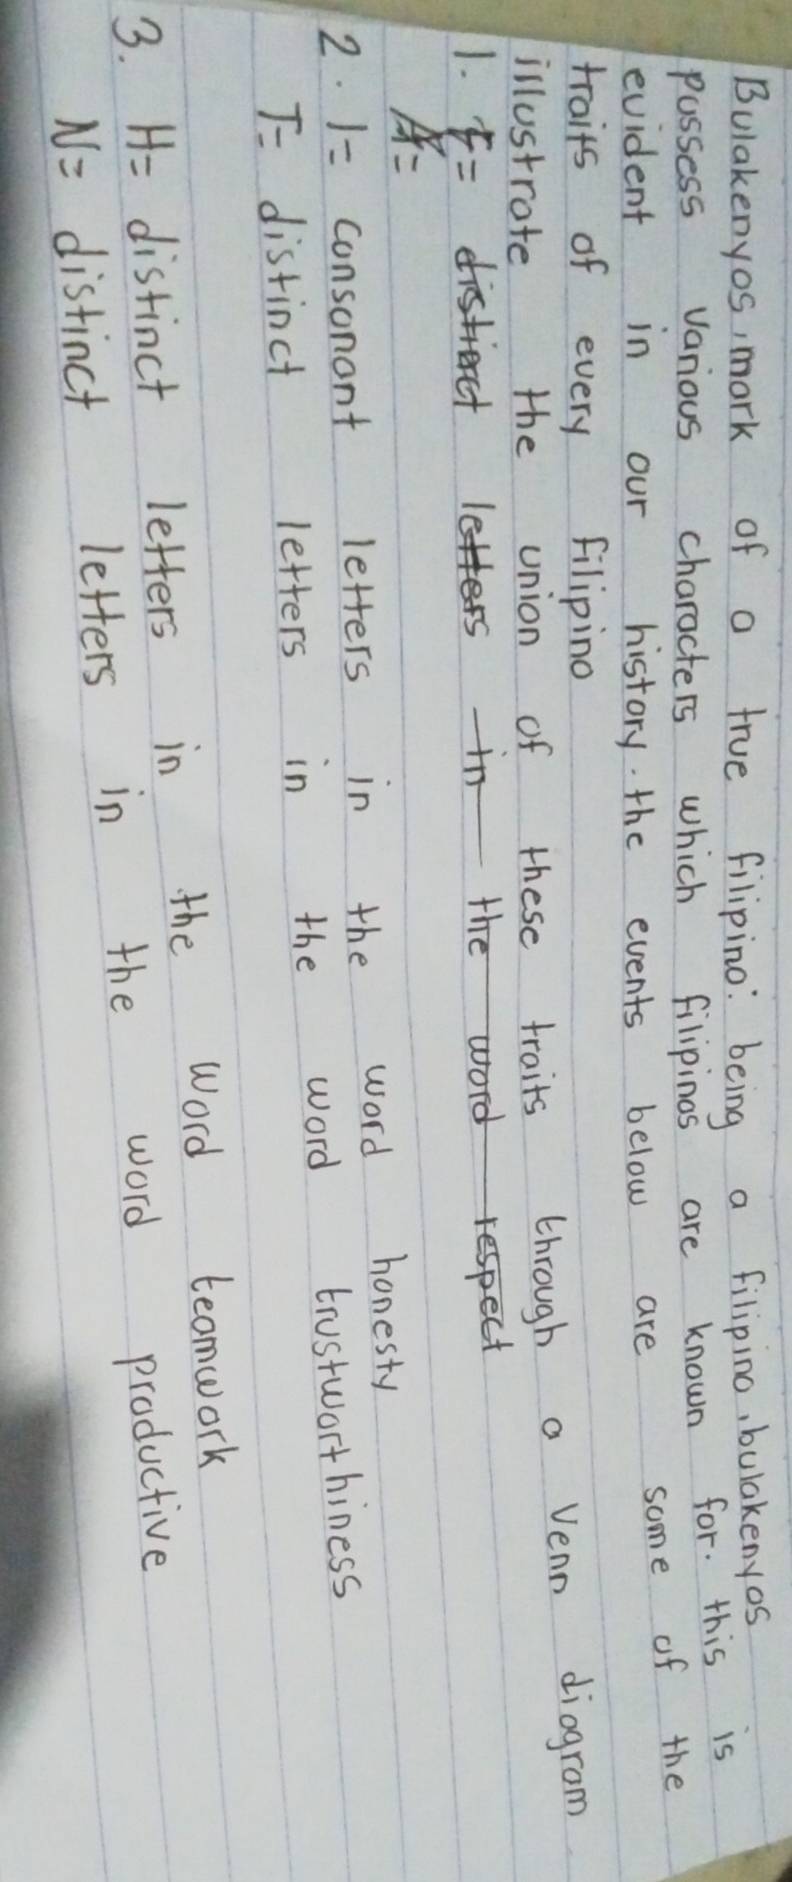 Bulakenyos, mark of a true filipino: being a filipino, bulakenyos
possess various characters which filipinos are known for. this is
evident in our history. the events below are some of the
traits of every filipino
illustrate the union of these traits through a Venn diagram
1. = distinct letters in the word respect
=
2. I= consonant letters in the word honesty
T= distinct letters in the word trustworthiness
3. H= distinct letters in the word teamwork
N= distinct letters in the word productive